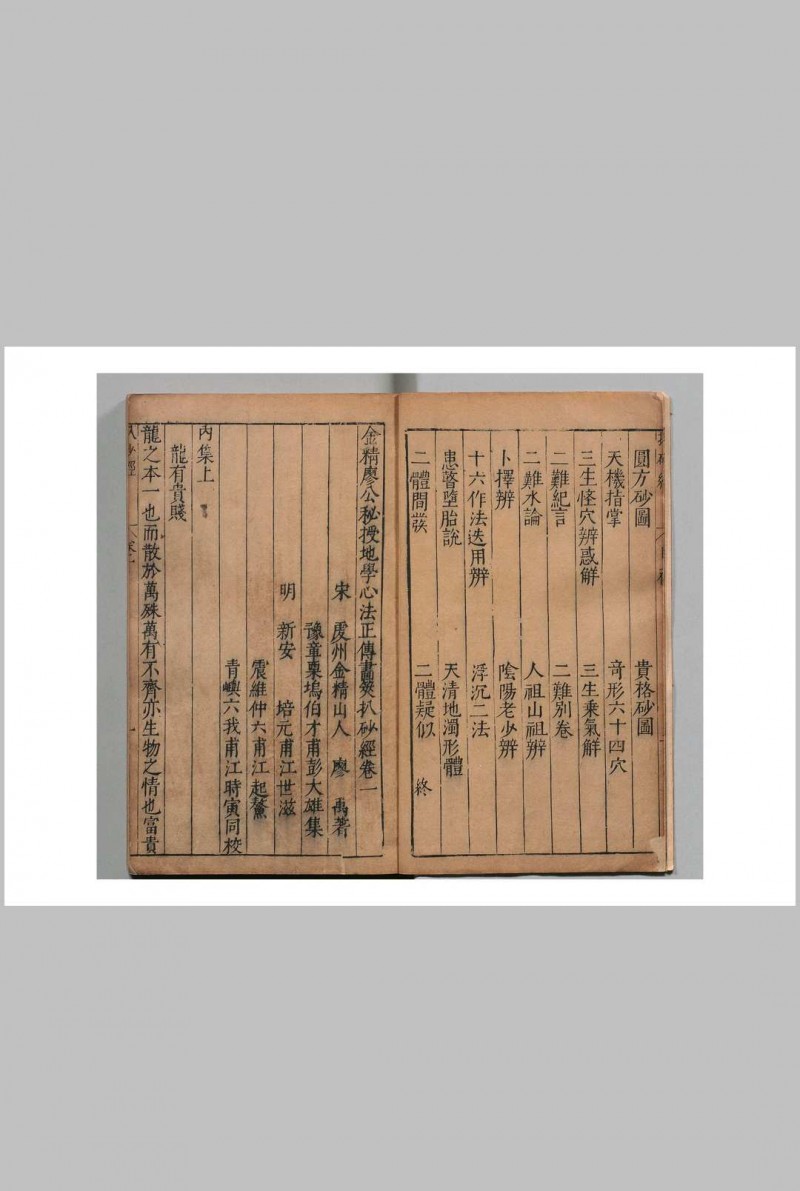 圓方砂圖 貴格砂圖
天機指掌 奇形六十四穴
三生怪穴辨惑解 三生乘氣解
二難紀言 二難別卷
二難水論 人祖山祖辨
卜擇辨 陰陽老少辨
十六作法迭用辨 浮沉二法
患瞽墮胎說 天清地濁形體
二體間發 二體疑似 終
金精廖公秘授地學心法正傳畫筴扒砂經卷一
宋 虔州金精山人 廖 禹著
豫章棗塢伯才甫彭大雄集
明 新安 培元甫江世滋
震維仲六甫江起鰲
青嶼六我甫江時寅同校
內集上
龍有貴賤
龍之本一也而散於萬殊萬有不齊亦生物之情也富貴